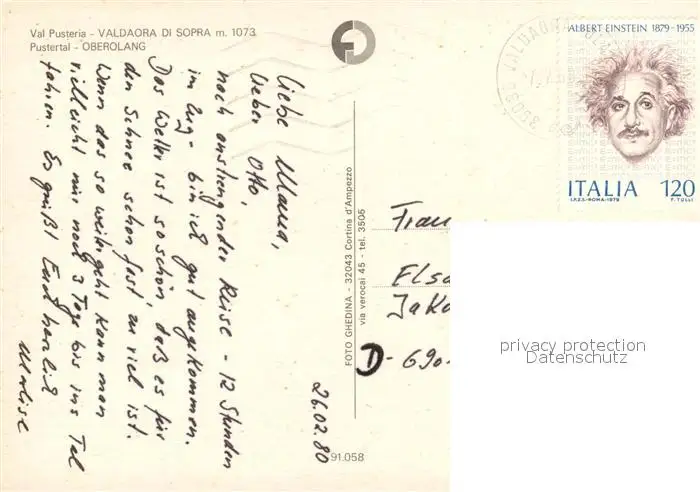 Val Pusteria - VALDAORA DI SOPRA m. 1073
Pustertal - OBEROLANG
Liebe Mama,
lieber Otto,
nach anstrengender Reise - 12 Stunden
im Zug - bin ich gut angekommen.
Das Wetter ist so schön, daß es für
den Schnee schon fast zu viel ist.
Wenn das so weitergeht kann man
vielleicht nur noch 3 Tage bis ins Tal
fahren. Es grüßt Euch herzlich
26.02.80
91.058
FOTO GHEDINA - 32043 Cortina d'Ampezzo
via verocai 45 - tel. 3505
ALBERT EINSTEIN 1879-1955
ITALIA 120
I.P.Z.S.-ROMA-1979 F. TULLI
VALDAORA
Frau
Elsa
Jako
D-690
privacy protection
Datenschutz